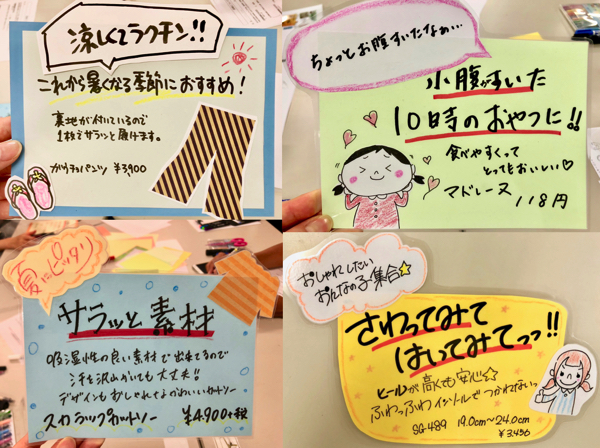 涼しくてラクチン!!
これから暑くなる季節におすすめ!
裏地が付いているので
1枚でサラッと履けます。
ガウチョパンツ ¥3,900
ちょっとお腹すいたなぁ…
小腹がすいた
10時のおやつに!!
食べやすくって
とってもおいしい♡
マドレーヌ
118円
夏にピッタリ
サラッと素材
吸湿性の良い素材で出来てるので
汗を沢山かいても大丈夫!!
デザインもおしゃれでかわいいカットソー
スカラックカットソー ¥4,900+税
おしゃれしたい
おんなの子集合☆
さわってみて
はいてみてっっ!!
ヒールが高くても安心☆
ふわっふわインソールでつかれないっ
SG-489 19.0cm~24.0cm
¥3,456